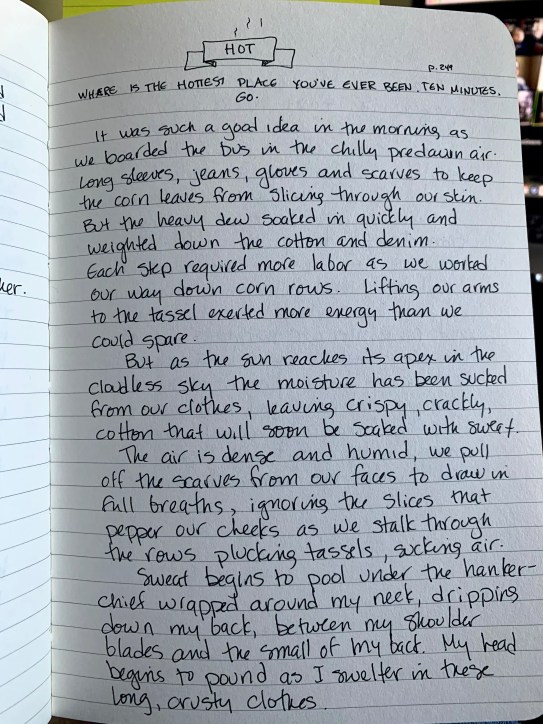 HOT
p. 249
WHERE IS THE HOTTEST PLACE YOU'VE EVER BEEN. TEN MINUTES.
GO.
It was such a good idea in the morning as
we boarded the bus in the chilly predawn air.
Long sleeves, jeans, gloves and scarves to keep
the corn leaves from slicing through our skin.
But the heavy dew soaked in quickly and
weighted down the cotton and denim.
Each step required more labor as we worked
our way down corn rows. Lifting our arms
to the tassel exerted more energy than we
could spare.
But as the sun reaches its apex in the
cloudless sky the moisture has been sucked
from our clothes, leaving crispy, crackly,
cotton that will soon be soaked with sweat.
The air is dense and humid, we pull
off the scarves from our faces to draw in
full breaths, ignoring the slices that
pepper our cheeks as we stalk through
the rows plucking tassels, sucking air.
Sweat begins to pool under the hanker-
chief wrapped around my neck, dripping
down my back, between my shoulder
blades and the small of my back. My head
begins to pound as I swelter in these
long, crusty clothes.